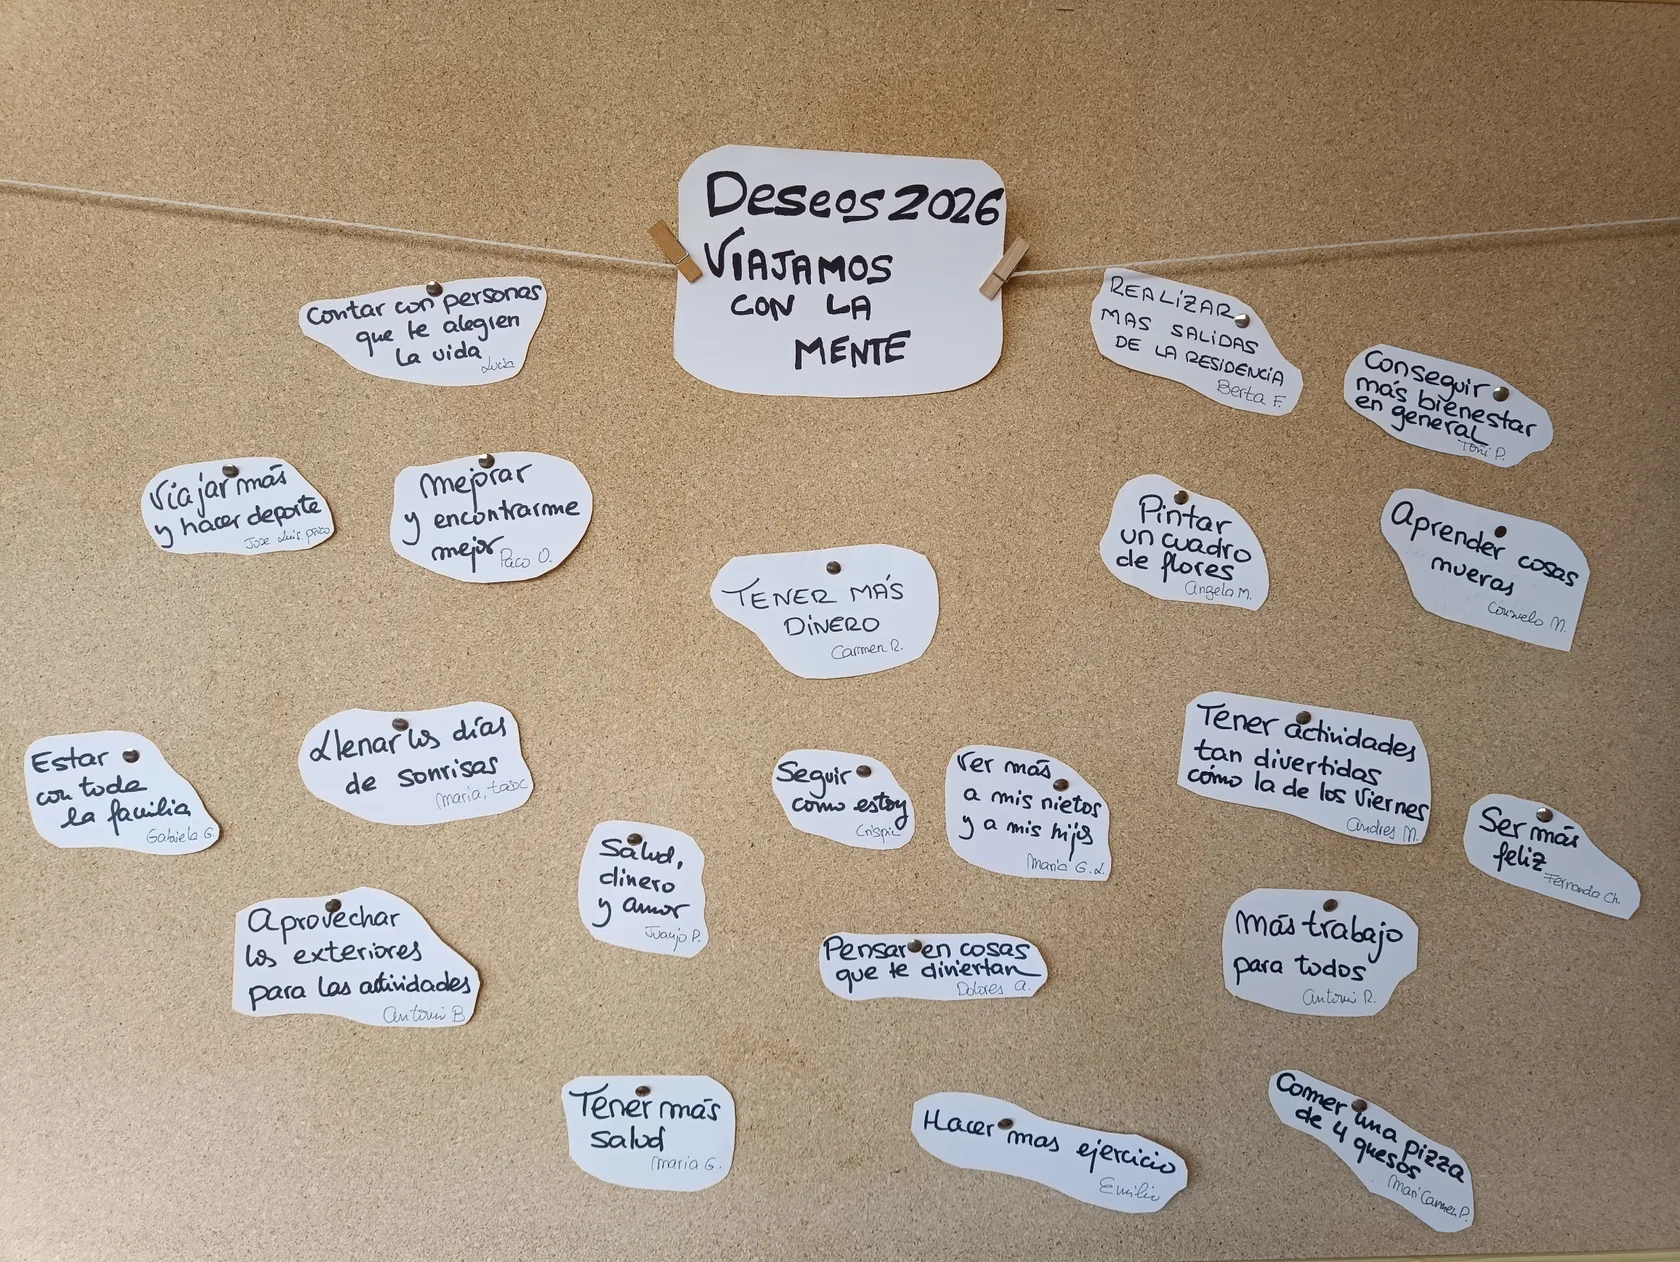 Deseos 2026
VIAJAMOS
CON LA
MENTE
Contar con personas
que te alegren
la vida
Lucía
REALIZAR
MAS SALIDAS
DE LA RESIDENCIA
Berta F.
Conseguir
más bienestar
en general
Toñi P.
Viajar más
y hacer deporte
Jose Luis
Mejorar
y encontrarme
mejor
Paco O.
TENER MÁS
DINERO
Carmen R.
Pintar
un cuadro
de flores
Angela M.
Aprender cosas
nuevas
Consuelo M.
Estar
con toda
la familia
Gabriela G.
Llenar los días
de sonrisas
María
Seguir
como estoy
Ver más
a mis nietos
y a mis hijos
María G. L.
Tener actividades
tan divertidas
cómo la de los Viernes
Andres M.
Ser más
feliz
Fernanda Ch.
Salud,
dinero
y amor
Juanjo P.
Aprovechar
los exteriores
para las actividades
Antonio B
Pensar en cosas
que te diviertan
Dolores A.
Más trabajo
para todos
Antonio R.
Tener más
salud
María G.
Hacer mas ejercicio
Emilio
Comer una pizza
de 4 quesos
Mari Carmen P.